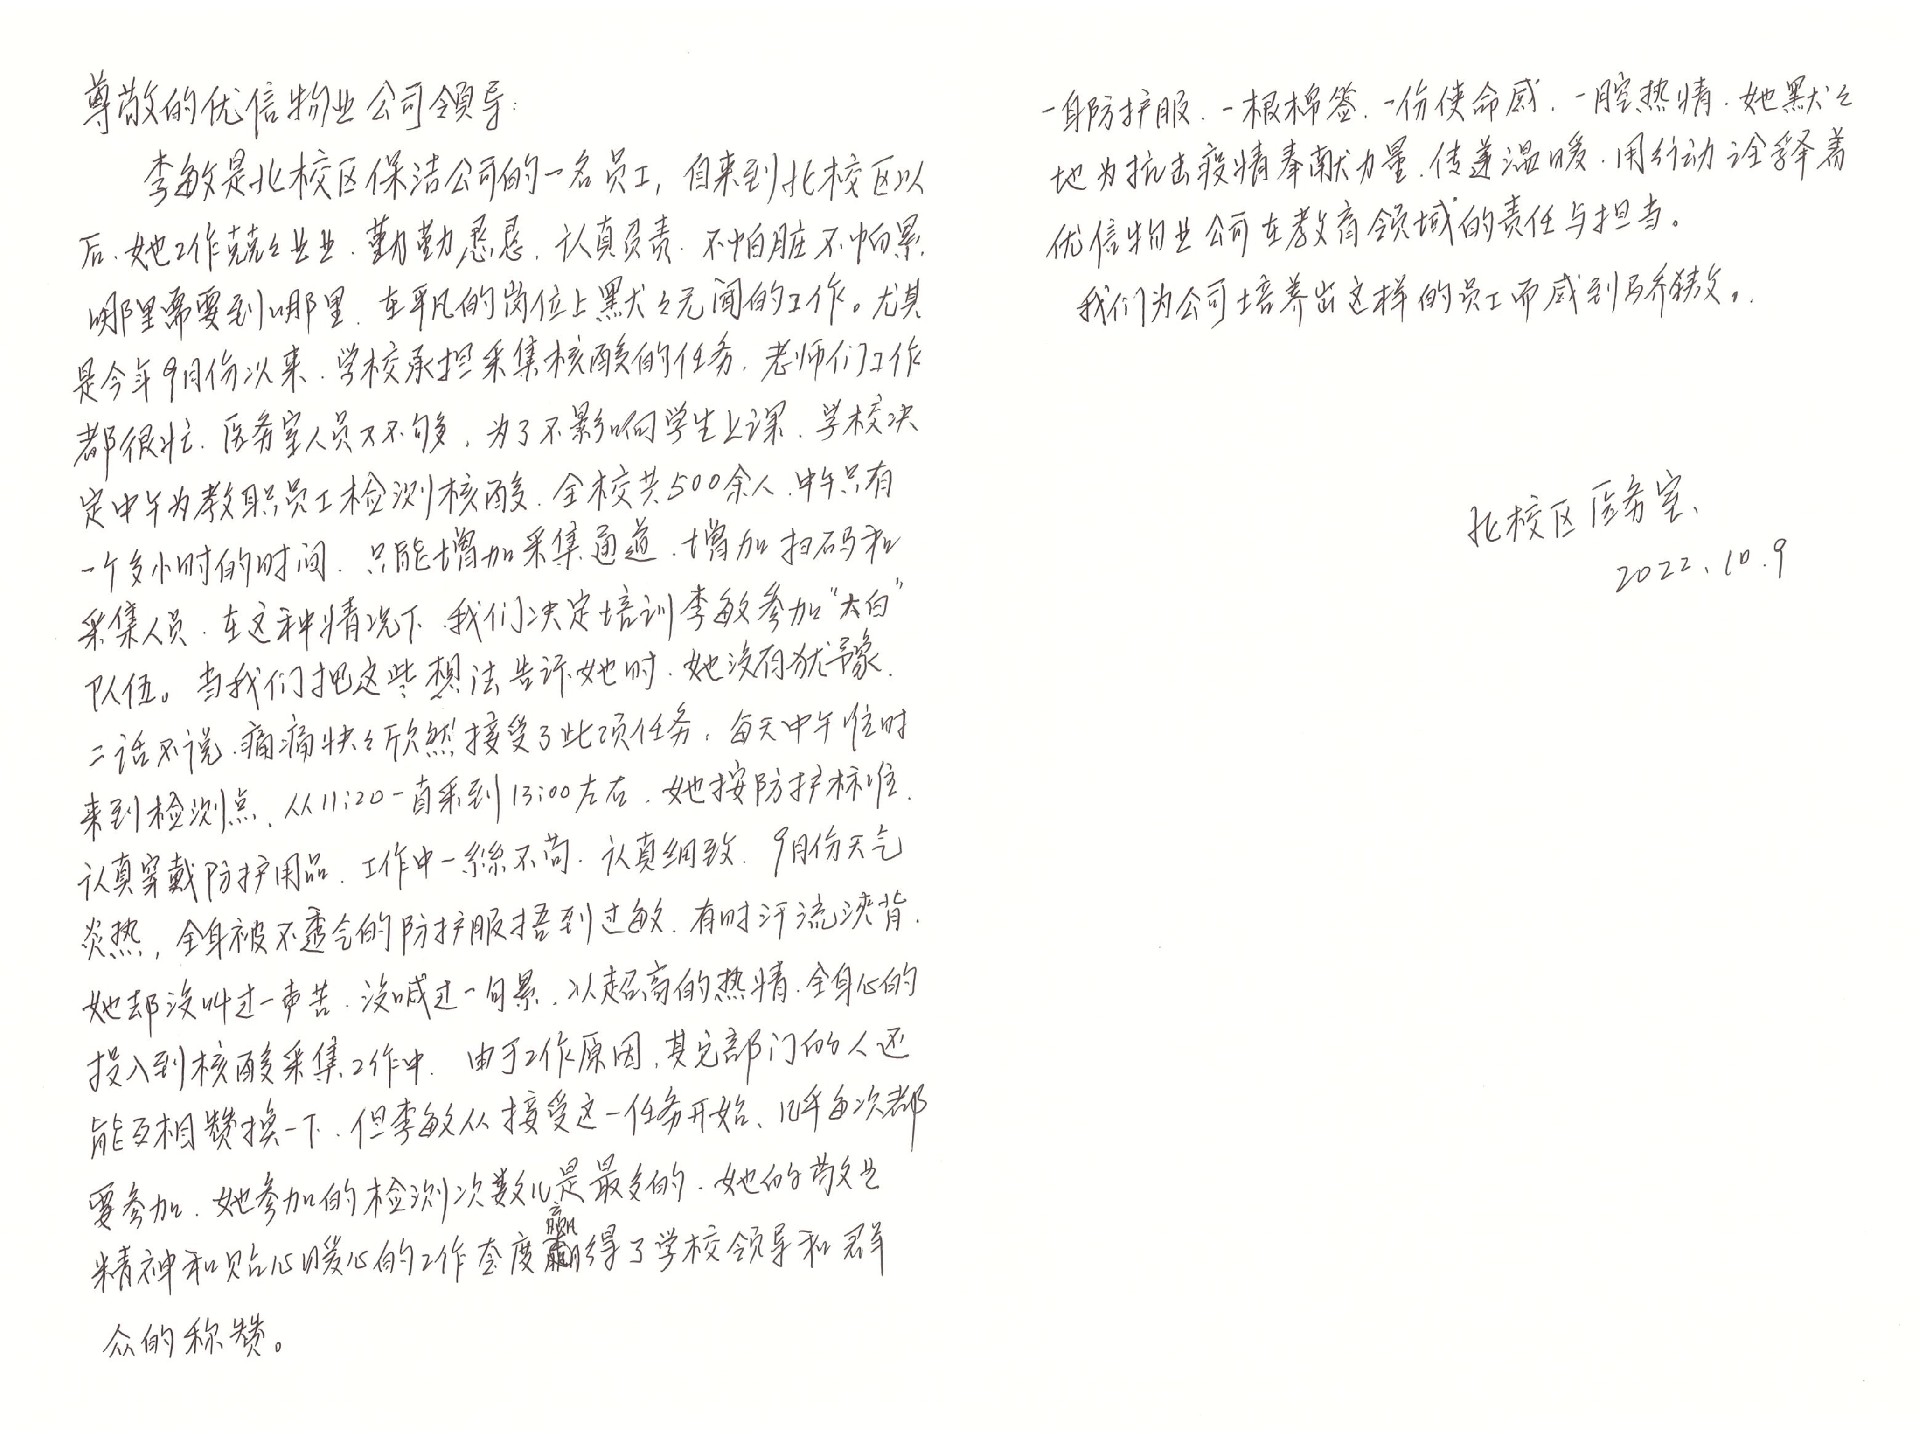 尊敬的优信物业公司领导:
李敏是北校区保洁公司的一名员工，自来到北校区以
后、她工作兢兢业业、勤勤恳恳、认真负责、不怕脏不怕累、
哪里需要到哪里、在平凡的岗位上默默无闻的工作。尤其
是今年9月份以来、学校承担采集核酸的任务、老师们工作
都很忙、医务室人员又不够多，为了不影响学生上课、学校决
定中午为教职员工检测核酸、全校共500余人、中午只有
一个多小时的时间、只能增加采集通道、增加扫码和
采集人员、在这种情况下、我们决定培训李敏参加“大白”
队伍。当我们把这些想法告诉她时、她没有犹豫、
二话不说、痛痛快快欣然接受了此项任务，每天中午准时
来到检测点、从11:20一直采到13:00左右、她按防护标准、
认真穿戴防护用品、工作中一丝不苟、认真细致、9月份天气
炎热，全身被不透气的防护服捂到过敏、有时汗流浃背、
她却没叫过一声苦、没喊过一句累、以超高的热情、全身心的
投入到核酸采集工作中、由于工作原因、其它部门的人还
能互相替换一下、但李敏从接受这一任务开始、几乎每次都
要参加、她参加的检测次数儿是最多的、她的敬业
精神和贴心暖心的工作态度赢得了学校领导和群
众的称赞。
一身防护服、一根棉签、一份使命感、一腔热情、她默默
地为抗击疫情奉献力量、传递温暖、用行动诠释着
优信物业公司在教育领域的责任与担当。
我们为公司培养出这样的员工而感到骄傲。
北校区医务室、
2022.10.9